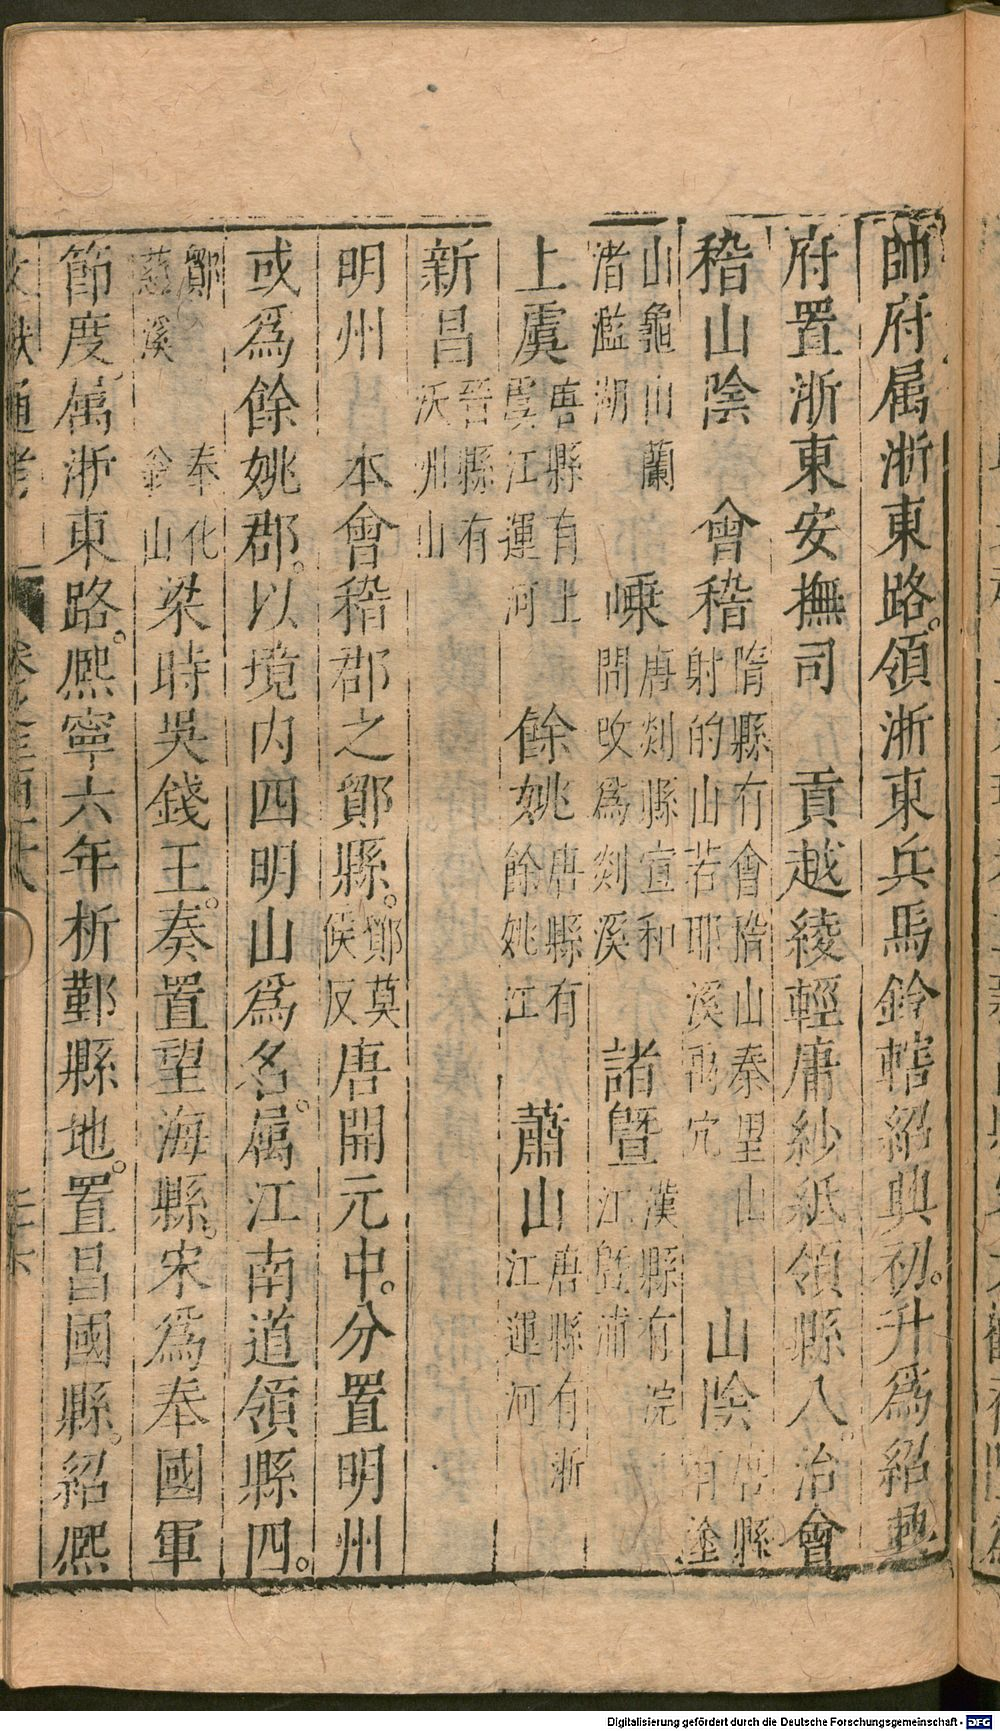 帥府属浙東路。領浙東兵馬鈐轄紹興初。升爲紹興
府置浙東安撫司　貢越綾輕庸紗紙領縣八。治會
稽山陰　會稽隋縣有會稽山秦望山射的山若耶溪禹穴　山陰唐縣有塗
山龜山蘭渚鑑湖　嵊唐剡縣宣和間改爲剡溪　諸暨漢縣有浣江曁浦
上虞唐縣有上虞江運河　餘姚唐縣有餘姚江　蕭山唐縣有浙江運河
新昌晉縣有沃州山
明州　本會稽郡之鄮縣。鄮莫候反　唐開元中。分置明州
或爲餘姚郡。以境内四明山爲名。属江南道領縣四。
鄮　奉化　慈溪　翁山　梁時吳錢王。奏置望海縣。宋爲奉國軍
節度。属浙東路。熈寧六年析鄞縣地。置昌國縣。紹熈
文獻通考
Digitalisierung gefördert durch die Deutsche Forschungsgemeinschaft - DFG